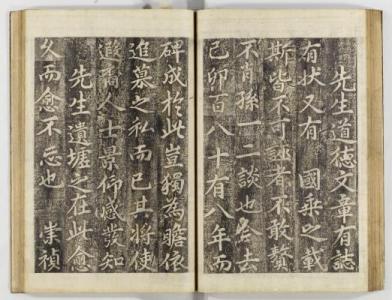 先生道德文章有誌
有狀又有 國乘之載
斯皆不可誣者不敢贅
不肖孫一二談也今去
己卯百八十有八年而
碑成於此豈獨為瞻依
追慕之私而已其將使
遐裔人士景仰感發知
先生遺墟之在此愈
久而愈不忘也 崇禎